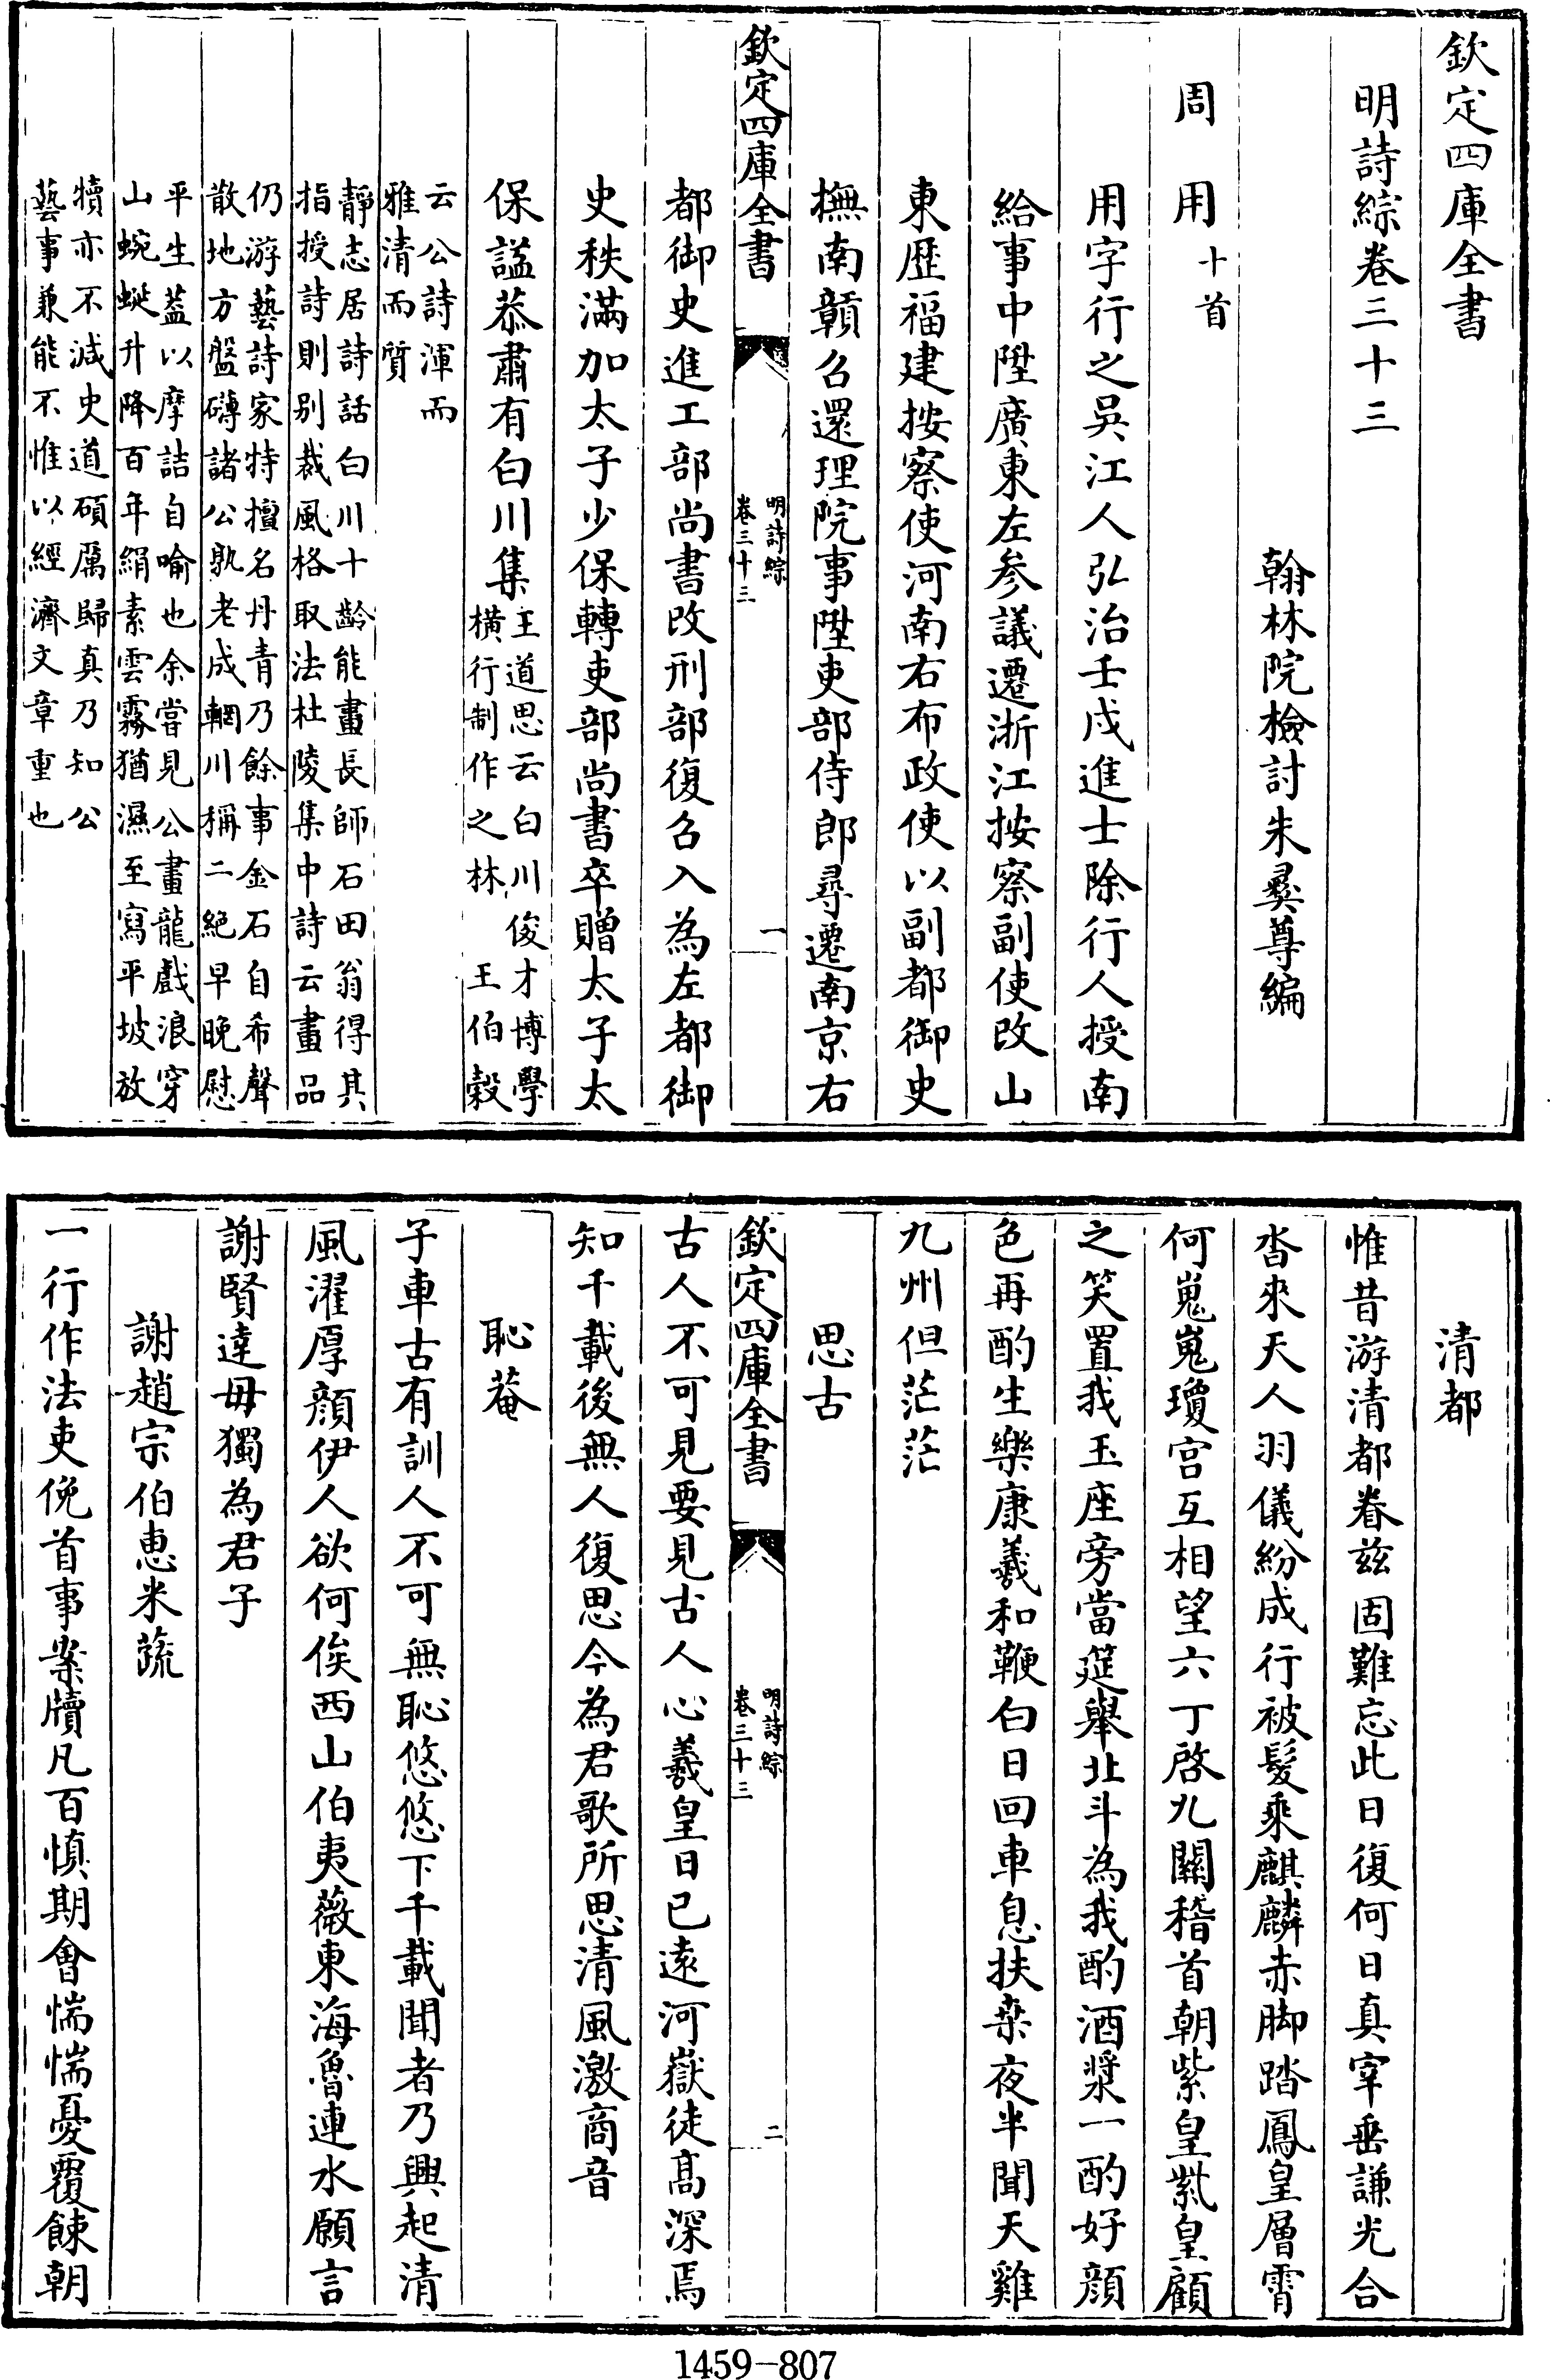 欽定四庫全書
明詩綜卷三十三
翰林院檢討朱彝尊編
周用十首
用字行之吳江人弘治壬戌進士除行人授南
給事中陞廣東左參議遷浙江按察副使改山
東歷福建按察使河南右布政使以副都御史
撫南贛召還理院事陞吏部侍郎尋遷南京右
欽定四庫全書
明詩綜
卷三十三
一
都御史進工部尚書改刑部復召入為左都御
史秩滿加太子少保轉吏部尚書卒贈太子太
保諡恭肅有白川集
王道思云白川俊才博學
橫行制作之林 王伯穀
云公詩渾而
雅清而質
靜志居詩話白川十齡能畫長師石田翁得其
指授詩則別裁風格取法杜陵集中詩云畫品
仍游藝詩家特擅名丹青乃餘事金石自希聲
散地方盤礴諸公孰老成輞川稱二絕早晚慰
平生蓋以摩詰自喻也余嘗見公畫龍戲浪穿
山蜿蜒升降百年絹素雲霧猶濕至寫平坡放
犢亦不減史道碩厲歸真乃知公
藝事兼能不惟以經濟文章重也
清都
惟昔游清都眷茲固難忘此日復何日真宰垂謙光合
沓來天人羽儀紛成行被髮乘麒麟赤腳踏鳳皇層霄
何嵬嵬瓊宮互相望六丁啓九關稽首朝紫皇紫皇顧
之笑置我玉座旁當筵舉北斗為我酌酒漿一酌好顏
色再酌生樂康羲和鞭白日回車息扶桑夜半聞天雞
九州但茫茫
思古
欽定四庫全書
明詩綜
卷三十三
二
古人不可見要見古人心羲皇日已遠河嶽徒高深焉
知千載後無人復思今為君歌所思清風激商音
恥菴
子車古有訓人不可無恥悠悠下千載聞者乃興起清
風濯厚顏伊人欲何俟西山伯夷薇東海魯連水願言
謝賢達毋獨為君子
謝趙宗伯惠米蔬
一行作法吏俛首事案牘凡百慎期會惴惴憂覆餗朝
1459-807